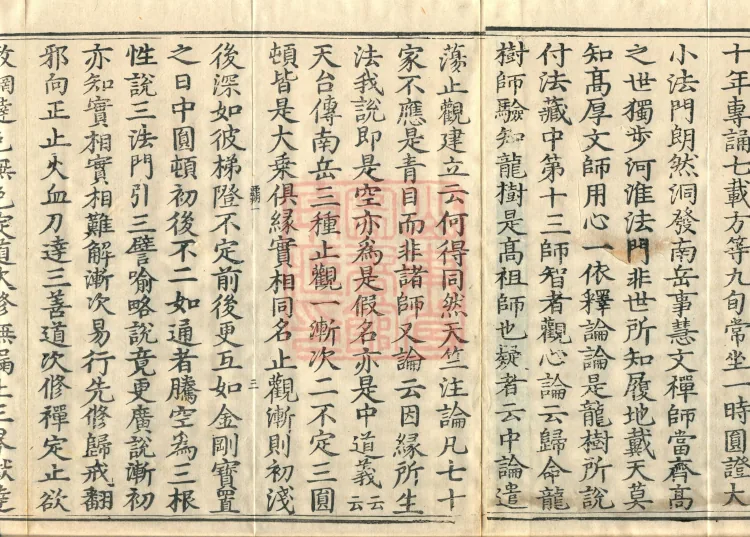 十年專誦七載方等九旬常坐一時圓證大
小法門朗然洞發南岳事慧文禪師當齊髙
之世獨步河淮法門非世所知履地戴天莫
知髙厚文師用心一依釋論論是龍樹所說
付法藏中第十三師智者觀心論云歸命龍
樹師驗知龍樹是髙祖師也疑者云中論遣
蕩止觀建立云何得同然天竺注論凡七十
家不應是青目而非諸師又論云因緣所生
法我說即是空亦為是假名亦是中道義云云
天台傳南岳三種止觀一漸次二不定三圓
頓皆是大乘俱緣實相同名止觀漸則初淺
後深如彼梯隥不定前後更互如金剛寶置
之日中圓頓初後不二如通者騰空為三根
性說三法門引三譬喻略說竟更廣說漸初
亦知實相實相難解漸次易行先修歸戒翻
邪向正止火血刀達三善道次修禪定止欲
散網達色無色定道次修無漏止三界獄達